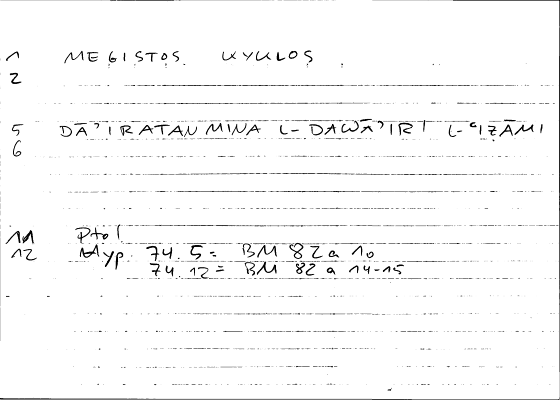 1 MEGISTOS KYKLOS
2
5 DĀʾIRATAN MINA L-DAWĀʾIRI L-ʿIẒĀMI
6
11 Ptol
12 Hyp. 74.5 = BM 82 a 10
74.12 = BM 82 a 14-15